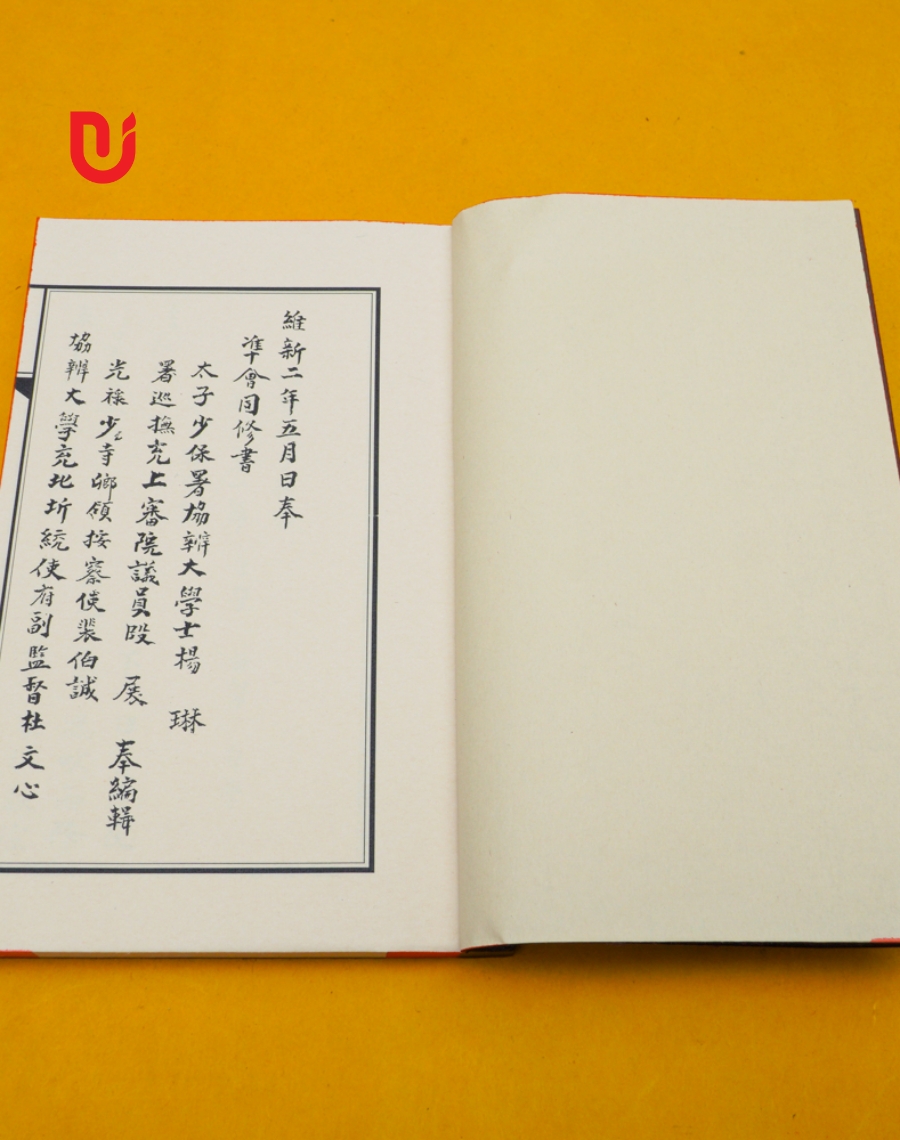 維新二年五月日奉
準會同修書
太子少保署協辦大學士楊　琳
署巡撫充上審院議員段　展　奉編輯
光祿少寺卿領按察使裴伯誠
協辦大學充北圻統使府副監督杜文心